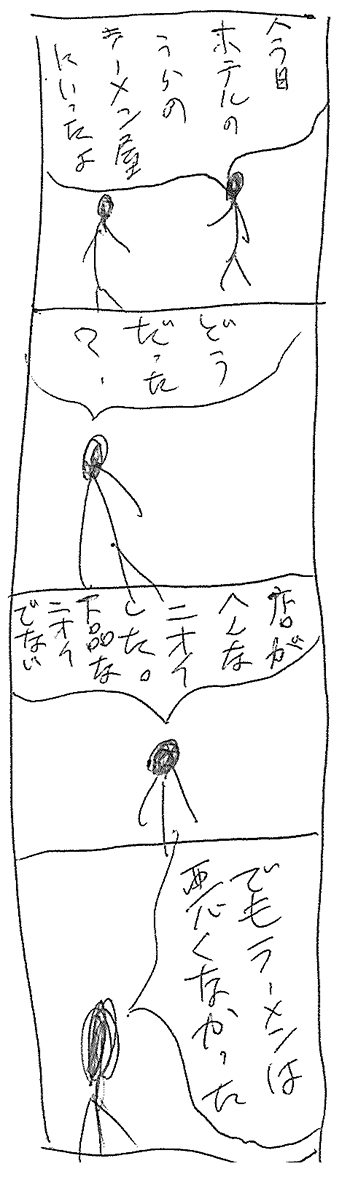 今日
ホテルの
うらの
ラーメン屋
にいったよ
どう
だった
?
店が
へんな
ニオイ
した。
下品な
ニオイ
でない
でもラーメンは
悪くなかった